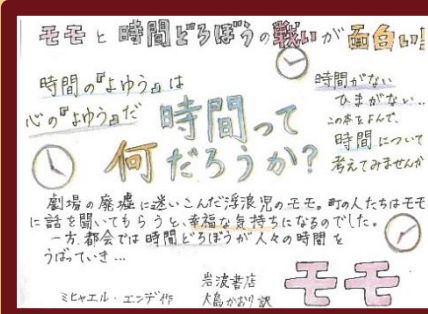 モモと時間どろぼうの戦いが面白い!!
時間の『よゆう』は
心の『よゆう』だ
時間って
何だろうか?
時間がない
ひまがない…
この本をよんで、
時間について
考えてみませんか
劇場の廃墟に迷いこんだ浮浪児のモモ。町の人たちはモモ
に話を聞いてもらうと、幸福な気持ちになるのでした。
一方、都会では時間どろぼうが人々の時間を
うばっていき…
ミヒャエル・エンデ作
岩波書店
大島かおり訳
モモ